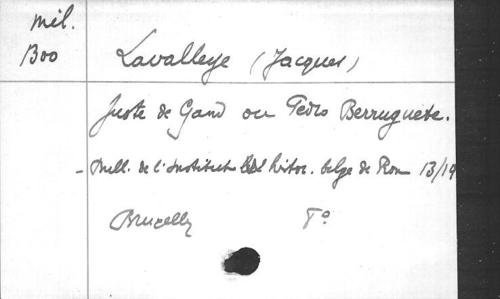 mil.
B00
Lavalleye (Jacques)
Juste de Gand ou Pedro Berruguete.
- Bull. de l'Institut hist. belge de Rome 13/19
Bruxelles 8°